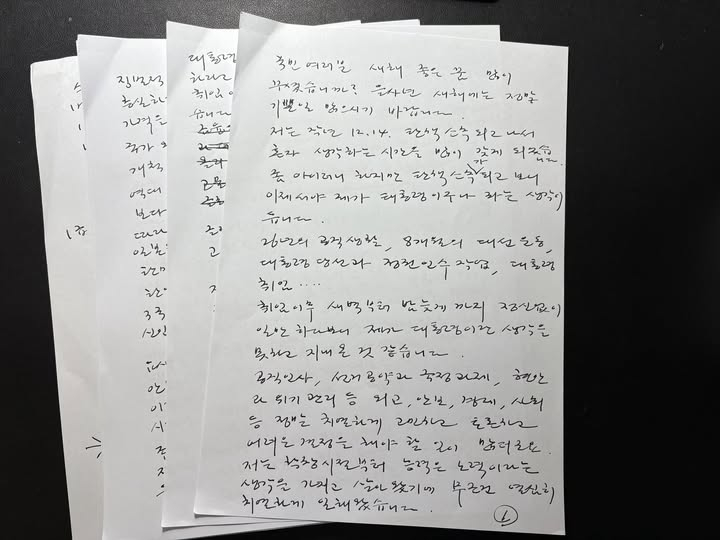 국민 여러분 새해 좋은 꿈 많이
꾸셨습니까? 을사년 새해에는 정말
기쁜일 많으시기 바랍니다.
저는 작년 12.14. 탄핵 소추 되고 나서
혼자 생각하는 시간을 많이 갖게 되었습니다.
좀 아이러니 하지만 탄핵소추가 되고 보니
이제서야 제가 대통령이구나 하는 생각이
듭니다.
26년의 공직생활, 8개월의 대선 운동,
대통령 당선과 정권 인수 작업, 대통령
취임....
취임이후 새벽부터 밤늦게 까지 정신없이
일만 하다보니 제가 대통령이란 생각을
못하고 지내온 것 같습니다.
공직인사, 선거공약과 국정과제, 현안
과 위기 관리 등 외교, 안보, 경제, 사회
등 정말 치열하게 고민하고 토론하고
어려운 결정을 해야 할 일이 많더군요.
저는 학창시절부터 능력은 노력이라는
생각을 가지고 살아 왔기에 무조건 열심히
치열하게 일해왔습니다.
1
대통령
하라고
취임
습니다
직무
충실하
가격은
국가
개척
역대
보다
따라
일본
한미
한
3국
선언